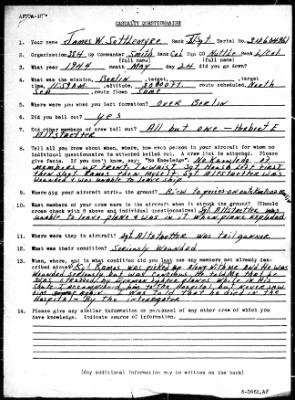 CASUALTY QUESTIONNAIRE
1. Your name James W. Setterger Rank S/Sgt Serial No.
2. Organization 384 Gp Commander Smith Rank Col Sqn CO Nuttle Rank L/Col
(full name) (full name)
3. What year 1944 month May day 24 did you go down?
4. What was the mission, Berlin, target,
time, 11:59AM, altitude, route scheduled, North
Sea, route flown
5. Where were you when you left formation? Over Berlin
6. Did you bail out? yes
7. Did other members of crew bail out? All but one - Herbert E
Altstaetter
8. Tell all you know about when, where, how each person in your aircraft for whom no
individual questionnaire is attached bailed out. A crew list is attached. Please
give facts. If you don't know, say: "No Knowledge". No Knowledge of
Sgt Altstaetter was
wounded & was unable to leave ship
9. Where did your aircraft strike the ground?
10. What members of your crew were in the aircraft when it struck the ground? (Should
cross check with 8 above and individual questionnaires) Sgt Altstaetter was
unable to leave plane & was in it when plane exploded
11. Where were they in aircraft? Sgt Altstaetter was tail gunner
12. What was their condition? Seriously Wounded
13. When, where, and in what condition did you last see any members not already described above?
was picked up along with me and He was
He told me that he
was strafed by German fighter planes while in his
chute. I accompanied him to the Hospital but never saw
him again. I was told that he died in the
Hospital - By the interrogator
14. Please give any similar information on personnel of any other crew of which you
have knowledge. Indicate source of information.
(Any additional information may be written on the back)
6-3862,AF